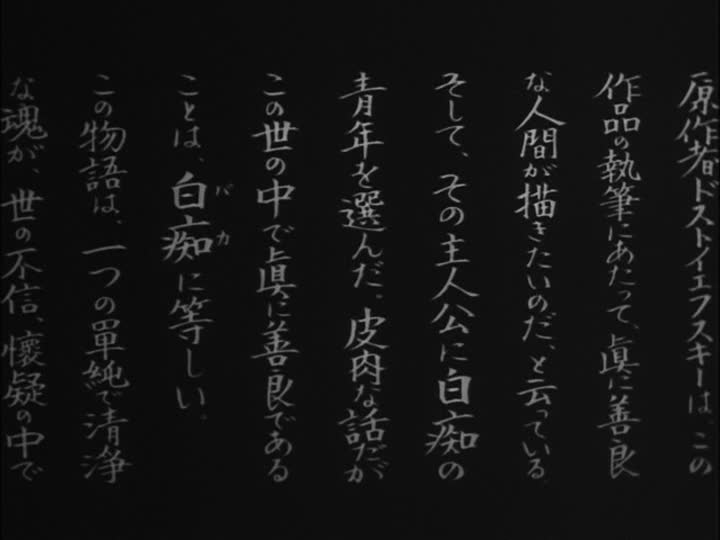 原作者ドストイエフスキーは、この
作品の執筆にあたって、眞に善良
な人間が描きたいのだ、と云っている
そして、その主人公に白痴の
青年を選んだ。皮肉な話だが
この世の中で眞に善良である
ことは、白痴(バカ)に等しい。
この物語は、一つの單純で清浄
な魂が、世の不信、懷疑の中で